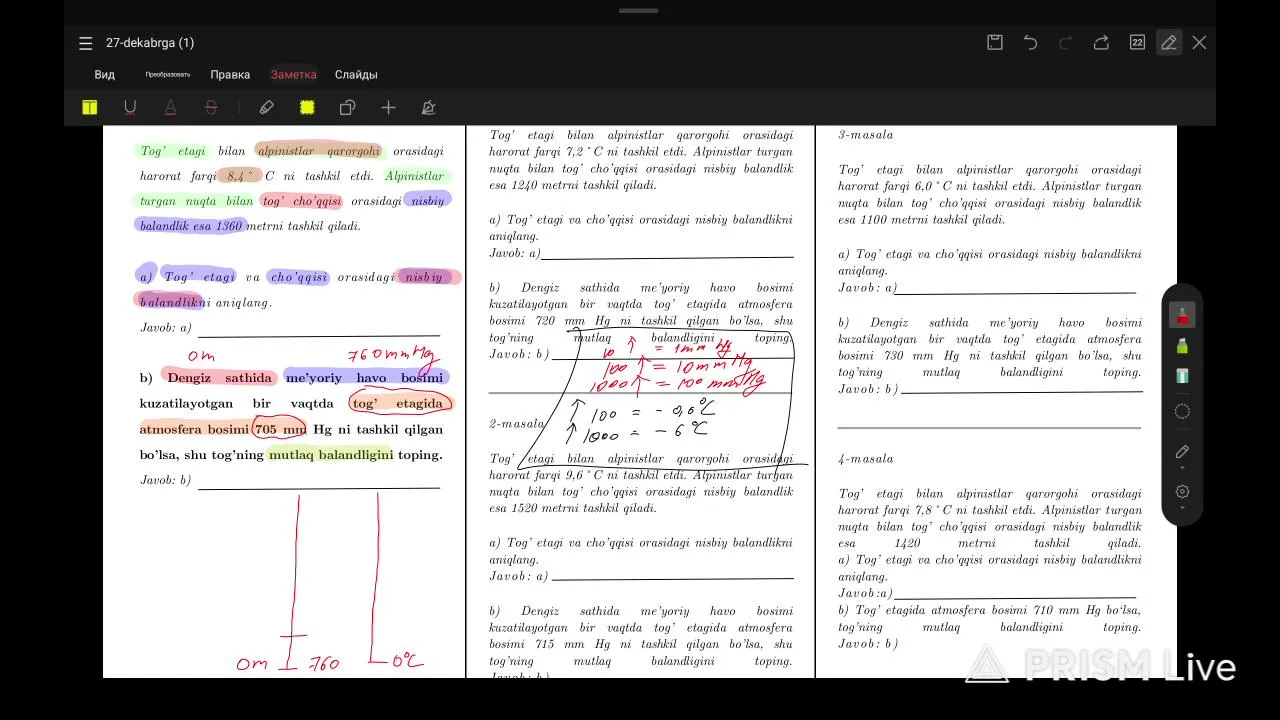 27-dekabrga (1)
22
Вид
Преобразовать
Правка
Заметка
Слайды
Tog' etagi bilan alpinistlar qarorgohi orasidagi
harorat farqi 8,4°C ni tashkil etdi. Alpinistlar
turgan nuqta bilan tog' cho'qqisi orasidagi nisbiy
balandlik esa 1360 metrni tashkil qiladi.
a) Tog' etagi va cho'qqisi orasidagi nisbiy
balandlikni aniqlang.
Javob: a)
0m
760mmHg
b) Dengiz sathida me'yoriy havo bosimi
kuzatilayotgan bir vaqtda tog' etagida
atmosfera bosimi 705 mm Hg ni tashkil qilgan
bo'lsa, shu tog'ning mutlaq balandligini toping.
Javob: b)
0m
760
0°C
Tog' etagi bilan alpinistlar qarorgohi orasidagi
harorat farqi 7,2°C ni tashkil etdi. Alpinistlar turgan
nuqta bilan tog' cho'qqisi orasidagi nisbiy balandlik
esa 1240 metrni tashkil qiladi.
a) Tog' etagi va cho'qqisi orasidagi nisbiy balandlikni
aniqlang.
Javob: a)
b) Dengiz sathida me'yoriy havo bosimi
kuzatilayotgan bir vaqtda tog' etagida atmosfera
bosimi 720 mm Hg ni tashkil qilgan bo'lsa, shu
tog'ning mutlaq balandligini toping.
Javob: b)
10 ↑ = 1mm Hg
100 ↑ = 10mm Hg
1000 ↑ = 100 mm Hg
↑ 100 = - 0,6°C
↑ 1000 = - 6°C
2-masala
Tog' etagi bilan alpinistlar qarorgohi orasidagi
harorat farqi 9,6°C ni tashkil etdi. Alpinistlar turgan
nuqta bilan tog' cho'qqisi orasidagi nisbiy balandlik
esa 1520 metrni tashkil qiladi.
a) Tog' etagi va cho'qqisi orasidagi nisbiy balandlikni
aniqlang.
Javob: a)
b) Dengiz sathida me'yoriy havo bosimi
kuzatilayotgan bir vaqtda tog' etagida atmosfera
bosimi 715 mm Hg ni tashkil qilgan bo'lsa, shu
tog'ning mutlaq balandligini toping.
Javob: b)
3-masala
Tog' etagi bilan alpinistlar qarorgohi orasidagi
harorat farqi 6,0°C ni tashkil etdi. Alpinistlar turgan
nuqta bilan tog' cho'qqisi orasidagi nisbiy balandlik
esa 1100 metrni tashkil qiladi.
a) Tog' etagi va cho'qqisi orasidagi nisbiy balandlikni
aniqlang.
Javob: a)
b) Dengiz sathida me'yoriy havo bosimi
kuzatilayotgan bir vaqtda tog' etagida atmosfera
bosimi 730 mm Hg ni tashkil qilgan bo'lsa, shu
tog'ning mutlaq balandligini toping.
Javob: b)
4-masala
Tog' etagi bilan alpinistlar qarorgohi orasidagi
harorat farqi 7,8°C ni tashkil etdi. Alpinistlar turgan
nuqta bilan tog' cho'qqisi orasidagi nisbiy balandlik
esa 1420 metrni tashkil qiladi.
a) Tog' etagi va cho'qqisi orasidagi nisbiy balandlikni
aniqlang.
Javob:a)
b) Tog' etagida atmosfera bosimi 710 mm Hg bo'lsa,
tog'ning mutlaq balandligini toping.
Javob: b)
PRISM Live